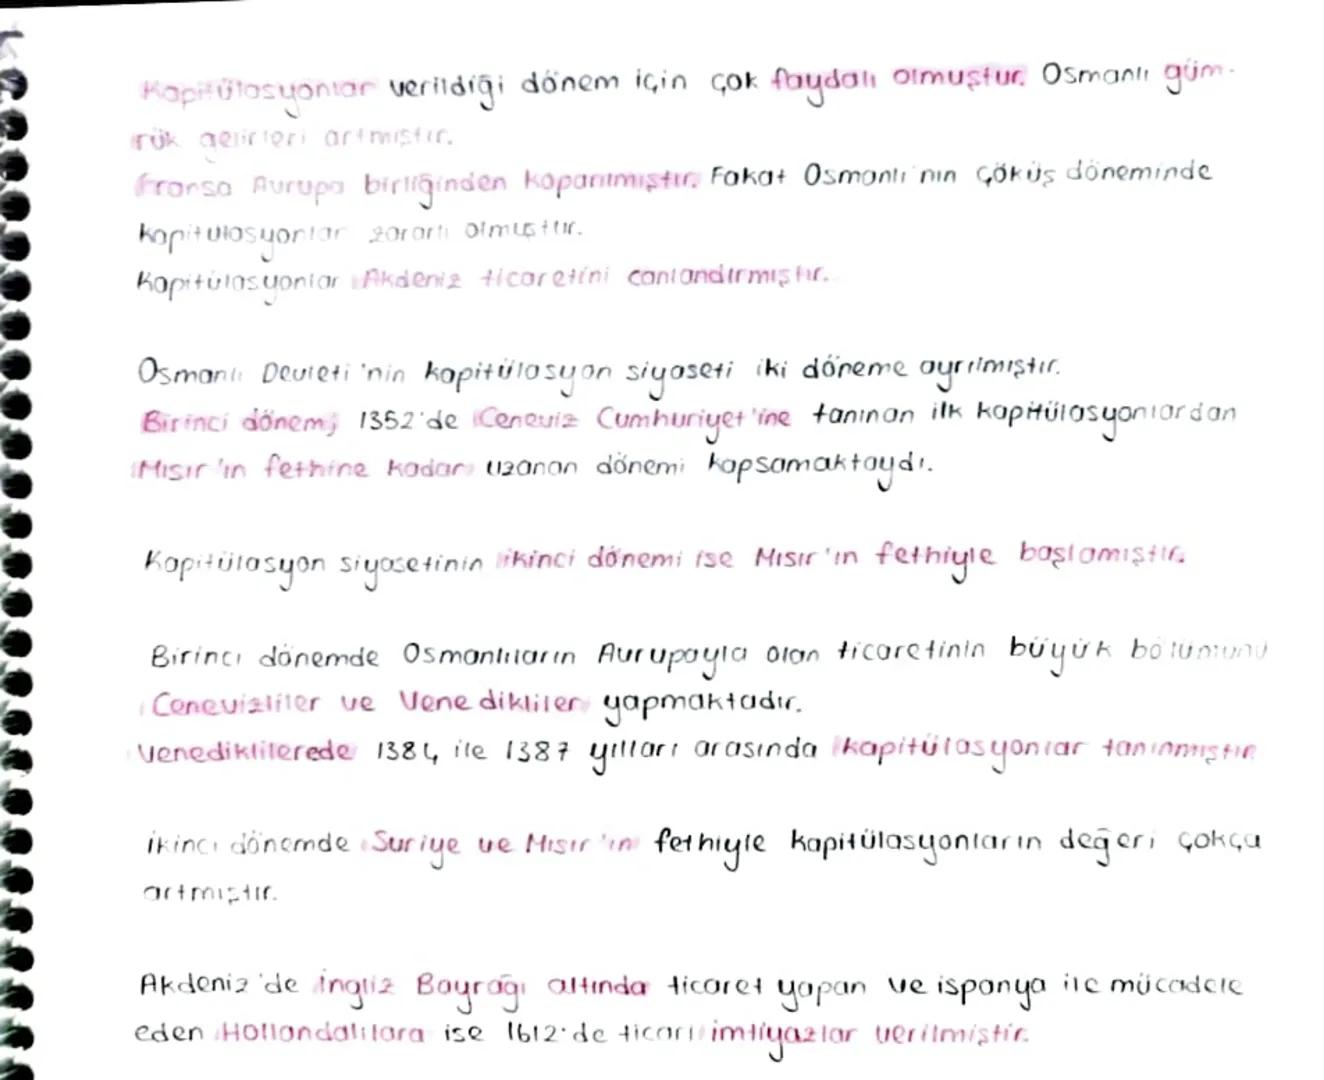 Kapitülasyonlar verildiği dönem için çok faydalı olmuştur. Osmanlı güm-
rük gelirleri artmıştır.
Fransa Avrupa birliğinden koparılmıştır. Fakat Osmanlı'nın çöküş döneminde
kapitülasyonlar zararlı olmuştur.
Kapitülasyonlar Akdeniz ticaretini canlandırmıştır.
Osmanlı Devleti'nin kapitülasyon siyaseti iki döneme ayrılmıştır.
Birinci dönem; 1352'de Ceneviz Cumhuriyet'ine tanınan ilk kapitülasyonlardan
Mısır'ın fethine kadar uzanan dönemi kapsamaktaydı.
Kapitülasyon siyasetinin ikinci dönemi ise Mısır'ın fethiyle başlamıştır.
Birinci dönemde Osmanlıların Avrupayla olan ticaretinin büyük bölümünü
Cenevizliler ve Venedikliler yapmaktadır.
Venediklilerede 1384 ile 1387 yılları arasında kapitülasyonlar tanınmıştır
ikinci dönemde Suriye ve Mısır'ın fethiyle kapitülasyonların değeri çokça
artmıştır.
Akdeniz'de ingliz Bayrağı altında ticaret yapan ve ispanya ile mücadele
eden Hollandalılara ise 1612'de ticari imtiyazlar verilmiştir.